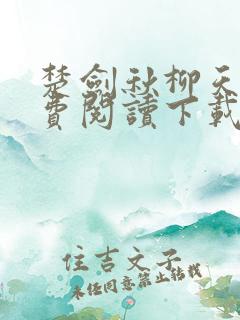 楚劍秋柳天
費閱讀下載
住吉文子
未经同意禁止转载